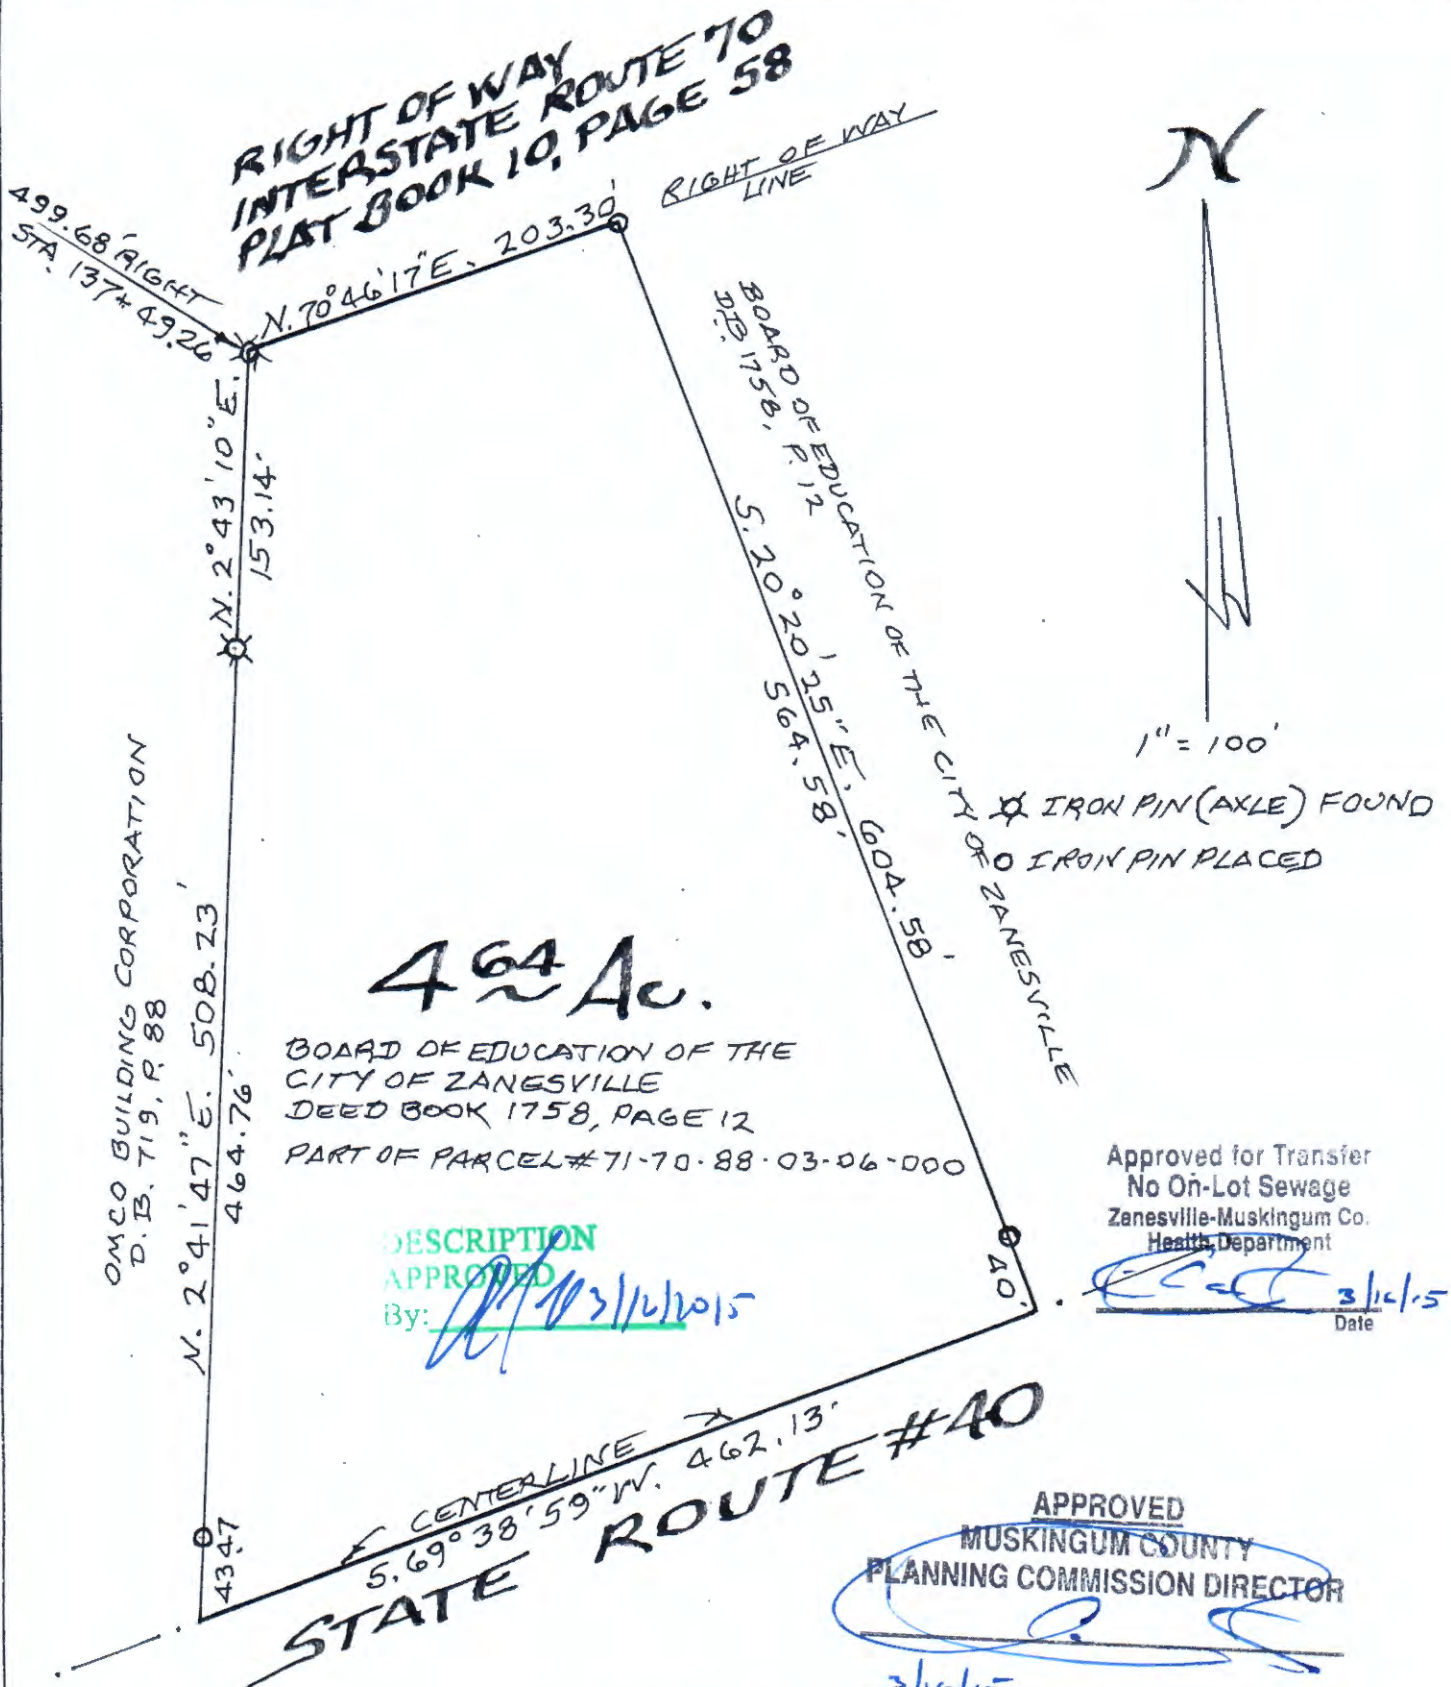 RIGHT OF WAY
INTERSTATE ROUTE 70
PLAT BOOK 10, PAGE 58
RIGHT OF WAY
LINE
N
499.68' RIGHT
STA. 137+49.26
N. 70°46'17"E. 203.30'
N. 2°43'10"E.
153.14'
BOARD OF EDUCATION OF THE CITY OF ZANESVILLE
D.B. 1758, P. 12
S. 20°20'25"E. 604.58'
564.58'
1" = 100'
IRON PIN (AXLE) FOUND
O IRON PIN PLACED
OMCO BUILDING CORPORATION
D.B. 719, P. 88
N. 2°41'47"E. 508.23'
464.76'
4 64 Ac.
BOARD OF EDUCATION OF THE
CITY OF ZANESVILLE
DEED BOOK 1758, PAGE 12
PART OF PARCEL # 71-70-88-03-06-000
DESCRIPTION
APPROVED
By: 3/12/2015
Approved for Transfer
No On-Lot Sewage
Zanesville-Muskingum Co.
Health Department
Date
40'
43.47
CENTERLINE
S. 69°38'59"W. 462.13'
STATE ROUTE #40
APPROVED
MUSKINGUM COUNTY
PLANNING COMMISSION DIRECTOR